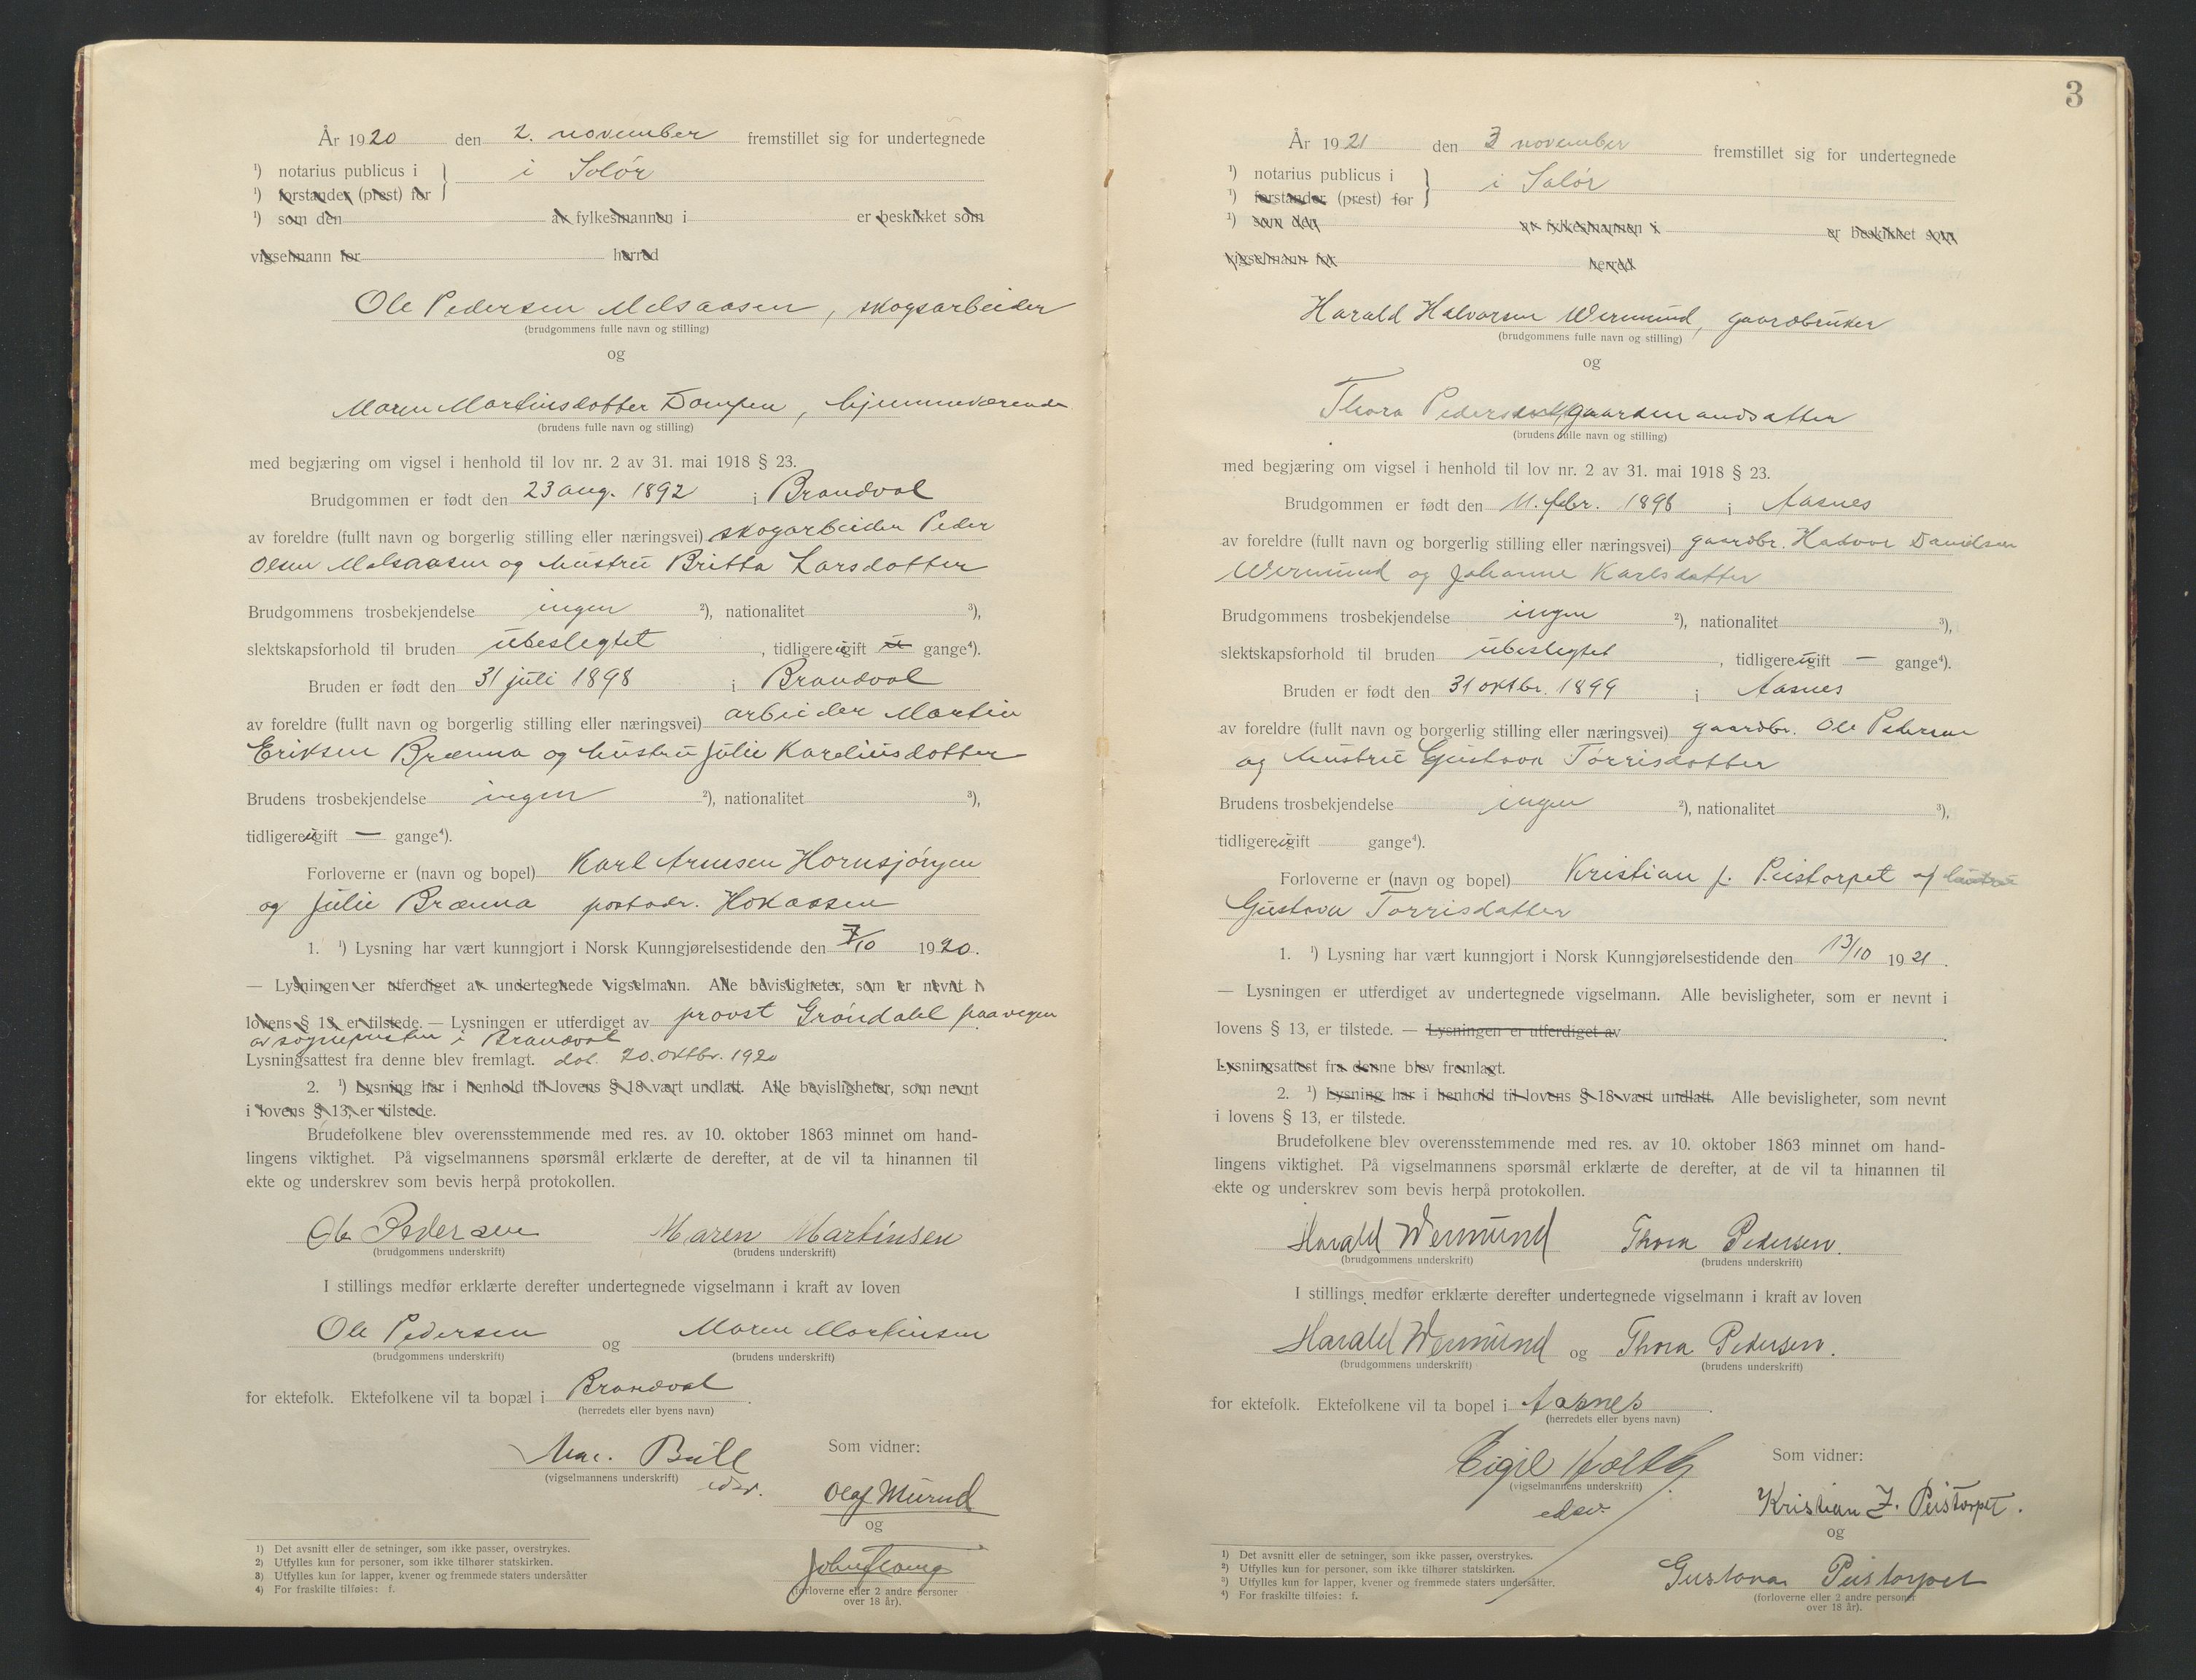 År 1920 den 2. november fremstillet sig for undertegnede
¹) notarius publicus i } i Solør
¹) forstander (prest) for
¹) som den av fylkesmannen i er beskikket som
vigselmann for herred
Ole Pedersen Melsaasen, skogsarbeider
(brudgommens fulle navn og stilling)
og
Maren Martinsdotter Dampen, hjemmeværende
(brudens fulle navn og stilling)
med begjæring om vigsel i henhold til lov nr. 2 av 31. mai 1918 § 23.
Brudgommen er født den 23 aug. 1892 i Brandval
av foreldre (fullt navn og borgerlig stilling eller næringsvei) skogarbeider Peder
Olsen Melsaasen og hustru Britta Larsdotter
Brudgommens trosbekjendelse ingen ²), nationalitet ³),
slektskapsforhold til bruden ubeslegtet, tidligere ugift gange⁴).
Bruden er født den 31 juli 1898 i Brandval
av foreldre (fullt navn og borgerlig stilling eller næringsvei) arbeider Martin
Eriksen Brænna og hustru Julie Kareliusdotter
Brudens trosbekjendelse ingen ²), nationalitet ³),
tidligere ugift — gange⁴).
Forloverne er (navn og bopel) Karl Arnesen Hornsjøryen
og Julie Brænna postadr. Hokaasen
1. ¹) Lysning har vært kunngjort i Norsk Kunngjørelsestidende den 7/10 1920.
— Lysningen er utferdiget av undertegnede vigselmann. Alle bevisligheter, som er nevnt i
lovens § 13, er tilstede. — Lysningen er utferdiget av provst Grøndahl paa vegen
av sogneprsten i Brandval
Lysningsattest fra denne blev fremlagt. dat. 20. oktbr. 1920
2. ¹) Lysning har i henhold til lovens § 18 vært undlatt. Alle bevisligheter, som nevnt
i lovens § 13, er tilstede.
Brudefolkene blev overensstemmende med res. av 10. oktober 1863 minnet om hand-
lingens viktighet. På vigselmannens spørsmål erklærte de derefter, at de vil ta hinannen til
ekte og underskrev som bevis herpå protokollen.
Ole Pedersen Maren Martinsen
(brudgommens underskrift) (brudens underskrift)
I stillings medfør erklærte derefter undertegnede vigselmann i kraft av loven
Ole Pedersen og Maren Martinsen
(brudgommens underskrift) (brudens underskrift)
for ektefolk. Ektefolkene vil ta bopæl i Brandval.
(herredets eller byens navn)
Bull
(vigselmannens underskrift)
Som vidner:
Olaf Murud
og
(forloverne eller 2 andre personer
over 18 år).
1) Det avsnitt eller de setninger, som ikke passer, overstrykes.
2) Utfylles kun for personer, som ikke tilhører statskirken.
3) Utfylles kun for lapper, kvener og fremmede staters undersåtter
4) For fraskilte tilføies: f.
3
År 1921 den 3 november fremstillet sig for undertegnede
¹) notarius publicus i } i Solør
¹) forstander (prest) for
¹) som den av fylkesmannen i er beskikket som
vigselmann for herred
Harald Halvorsen Wermund, gaardbruker
(brudgommens fulle navn og stilling)
og
Thora Pedersen, gaardmandsatter
(brudens fulle navn og stilling)
med begjæring om vigsel i henhold til lov nr. 2 av 31. mai 1918 § 23.
Brudgommen er født den 11. febr. 1898 i Aasnes
av foreldre (fullt navn og borgerlig stilling eller næringsvei) gaardbr. Halvor Davidsen
Wermund og Johanne Karlsdatter
Brudgommens trosbekjendelse ingen ²), nationalitet ³),
slektskapsforhold til bruden ubeslegtet, tidligere ugift — gange⁴).
Bruden er født den 31 oktbr. 1899 i Aasnes
av foreldre (fullt navn og borgerlig stilling eller næringsvei) gaardbr. Ole Pedersen
og hustru Gustava Tørrisdotter
Brudens trosbekjendelse ingen ²), nationalitet ³),
tidligere ugift gange⁴).
Forloverne er (navn og bopel) Kristian J. Peistorpet og hustru
Gustava Torrisdatter
1. ¹) Lysning har vært kunngjort i Norsk Kunngjørelsestidende den 13/10 1921.
— Lysningen er utferdiget av undertegnede vigselmann. Alle bevisligheter, som er nevnt i
lovens § 13, er tilstede. — Lysningen er utferdiget av
Lysningsattest fra denne blev fremlagt.
2. ¹) Lysning har i henhold til lovens § 18 vært undlatt. Alle bevisligheter, som nevnt
i lovens § 13, er tilstede.
Brudefolkene blev overensstemmende med res. av 10. oktober 1863 minnet om hand-
lingens viktighet. På vigselmannens spørsmål erklærte de derefter, at de vil ta hinannen til
ekte og underskrev som bevis herpå protokollen.
Harald Wermund Thora Pedersen.
(brudgommens underskrift) (brudens underskrift)
I stillings medfør erklærte derefter undertegnede vigselmann i kraft av loven
Harald Wermund og Thora Pedersen.
(brudgommens underskrift) (brudens underskrift)
for ektefolk. Ektefolkene vil ta bopel i Aasnes.
(herredets eller byens navn)
Eigil Holtby
(vigselmannens underskrift)
edsv.
Som vidner:
Kristian J. Peistorpet.
og
Gustava Peistorpet
(forloverne eller 2 andre personer
over 18 år).
¹) Det avsnitt eller de setninger, som ikke passer, overstrykes.
²) Utfylles kun for personer, som ikke tilhører statskirken.
³) Utfylles kun for lapper, kvener og fremmede staters undersåtter.
⁴) For fraskilte tilføies: f.